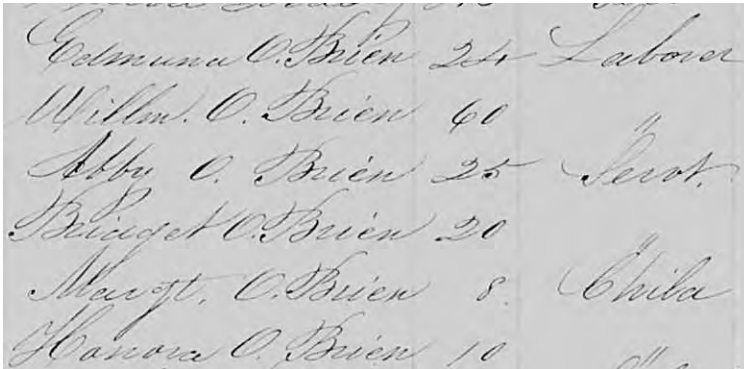 Edmund O.Brien 24 Laborer
Willm. O. Brien 60 "
Abby O. Brien 25 Servt.
Bridget O.Brien 20 "
Margt. O.Brien 8 Child
Honora O. Brien 10 "